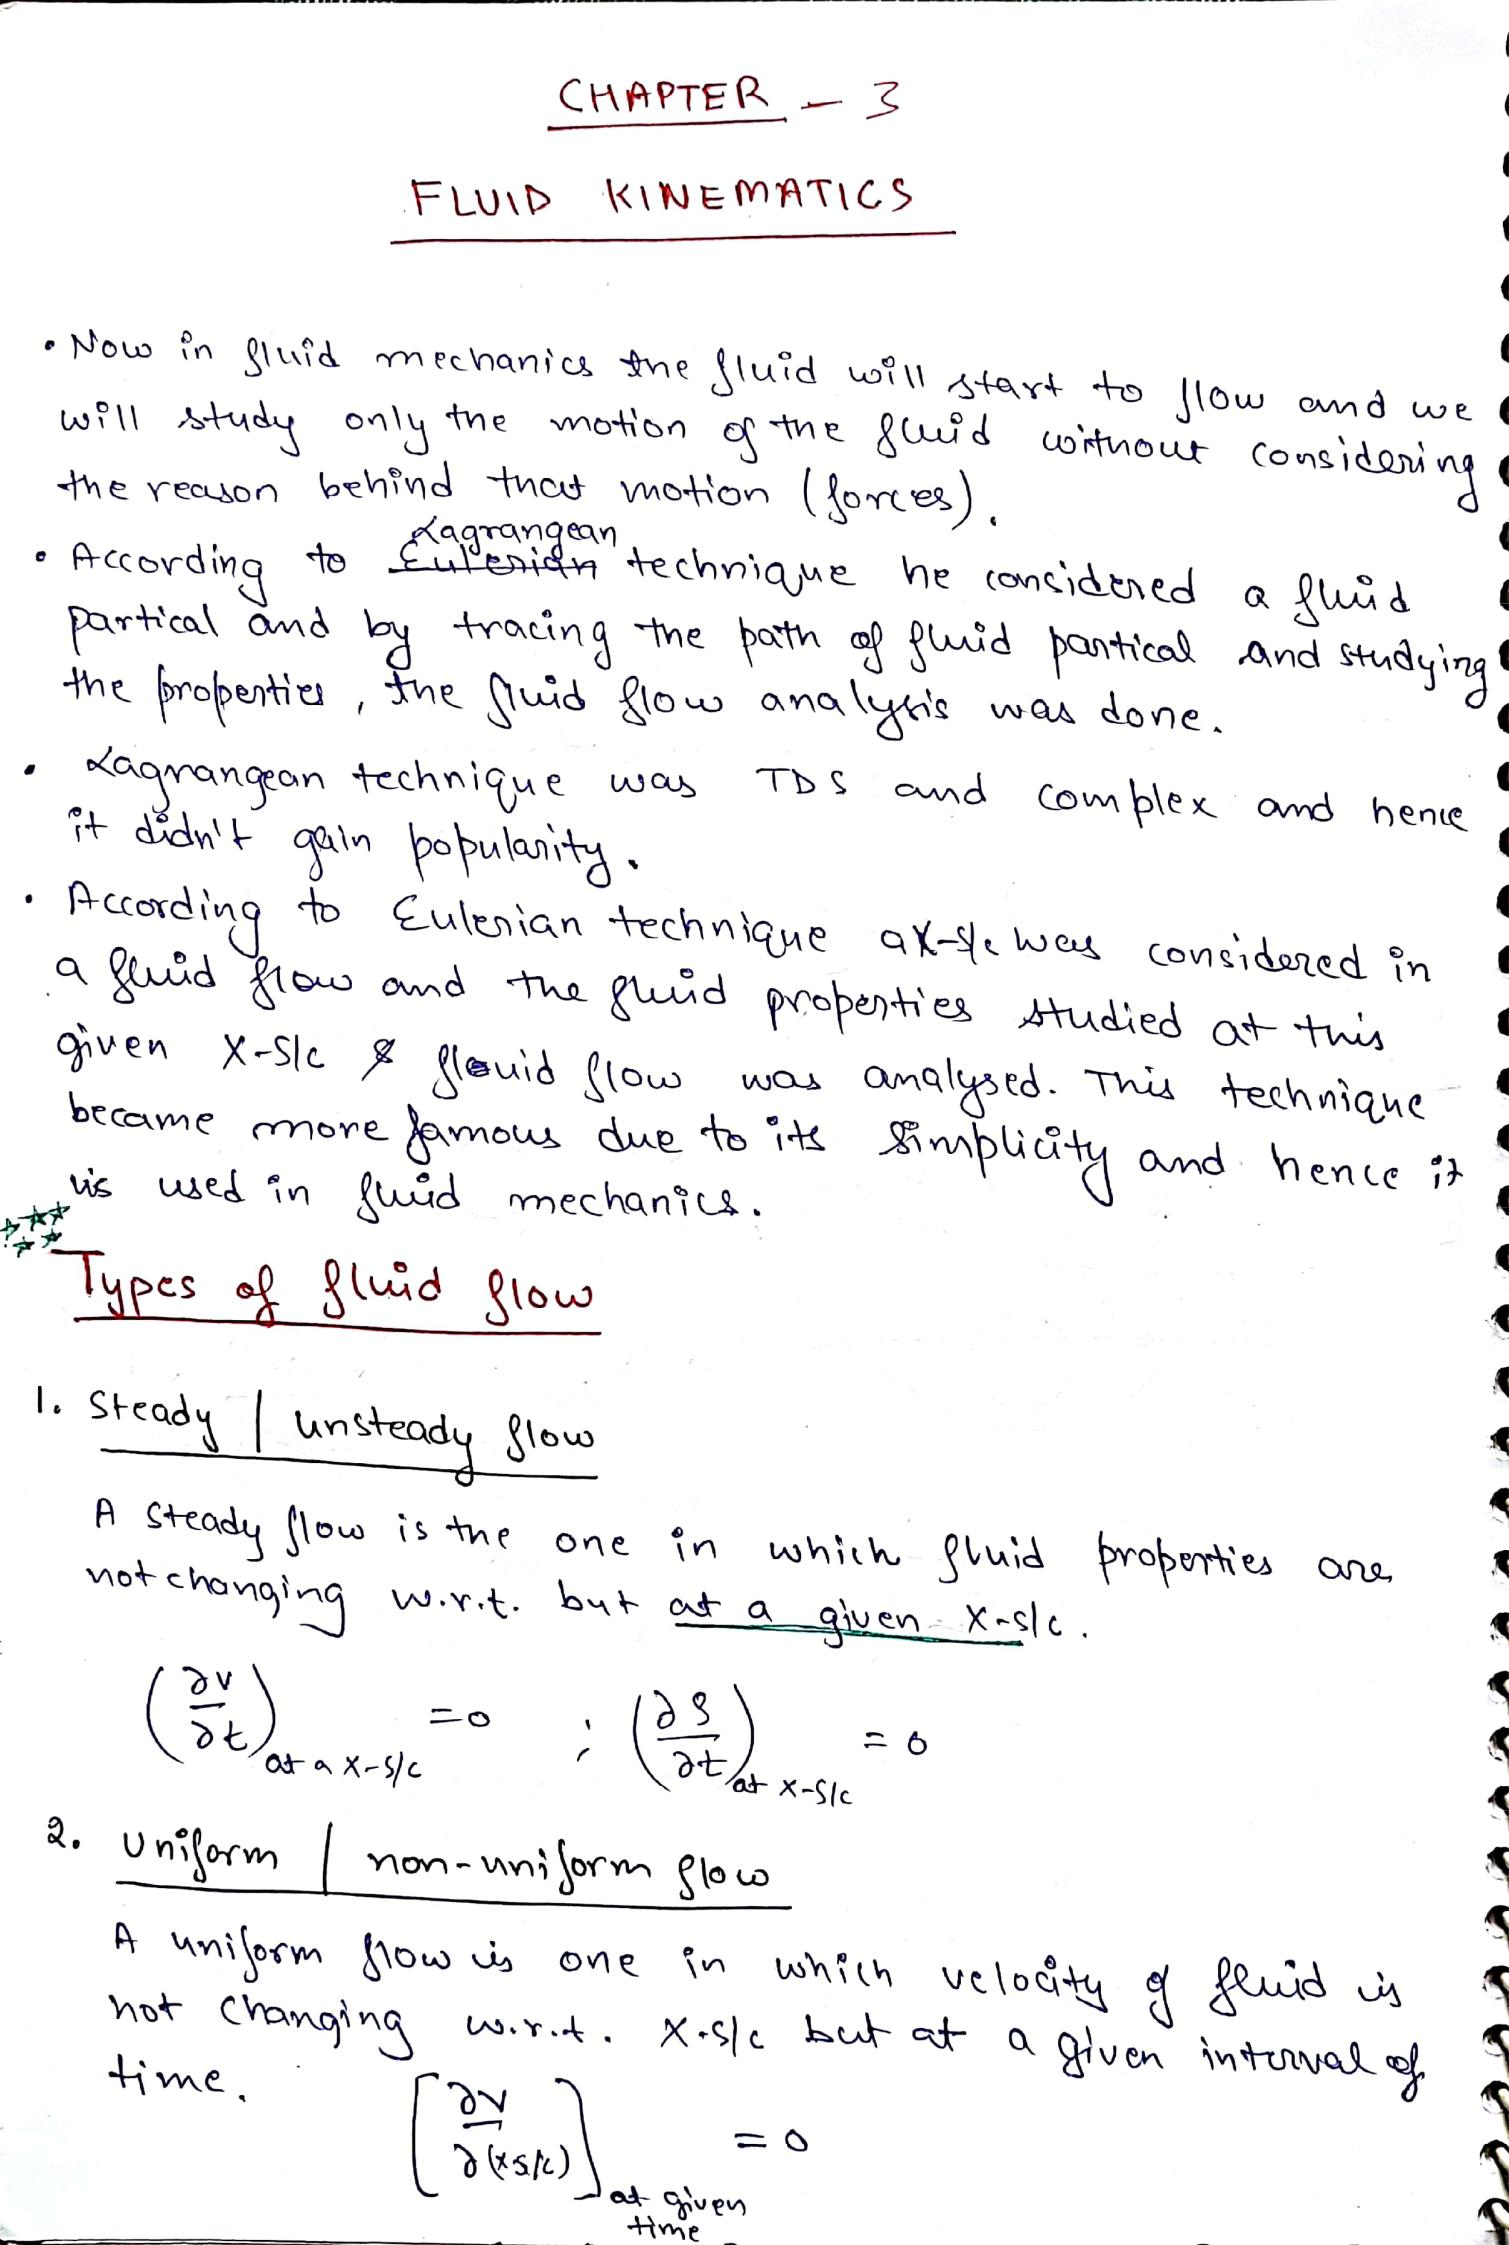 CHAPTER - 3
FLUID KINEMATICS
• Now in fluid mechanics the fluid will start to flow and we
will study only the motion of the fluid without considering
the reason behind that motion (forces).
Lagrangean
• According to Eulerian technique he considered a fluid
partical and by tracing the path of fluid partical and studying
the properties, the fluid flow analysis was done.
• Lagrangean technique was TDS and complex and hence
it didn't gain popularity.
• According to Eulerian technique a X-S/c was considered in
a fluid flow and the fluid properties studied at this
given X-S/c & fluid flow was analysed. This technique
became more famous due to its simplicity and hence it
is used in fluid mechanics.
Types of fluid flow
1. Steady / unsteady flow
A steady flow is the one in which fluid properties are
not changing w.r.t. but at a given X-s/c.
(∂v/∂t) at a X-S/c = 0 ; (∂ρ/∂t) at X-S/c = 0
2. Uniform / non-uniform flow
A uniform flow is one in which velocity of fluid is
not changing w.r.t. X-s/c but at a given interval of
time.
[∂v/∂(xs/c)] at given time = 0